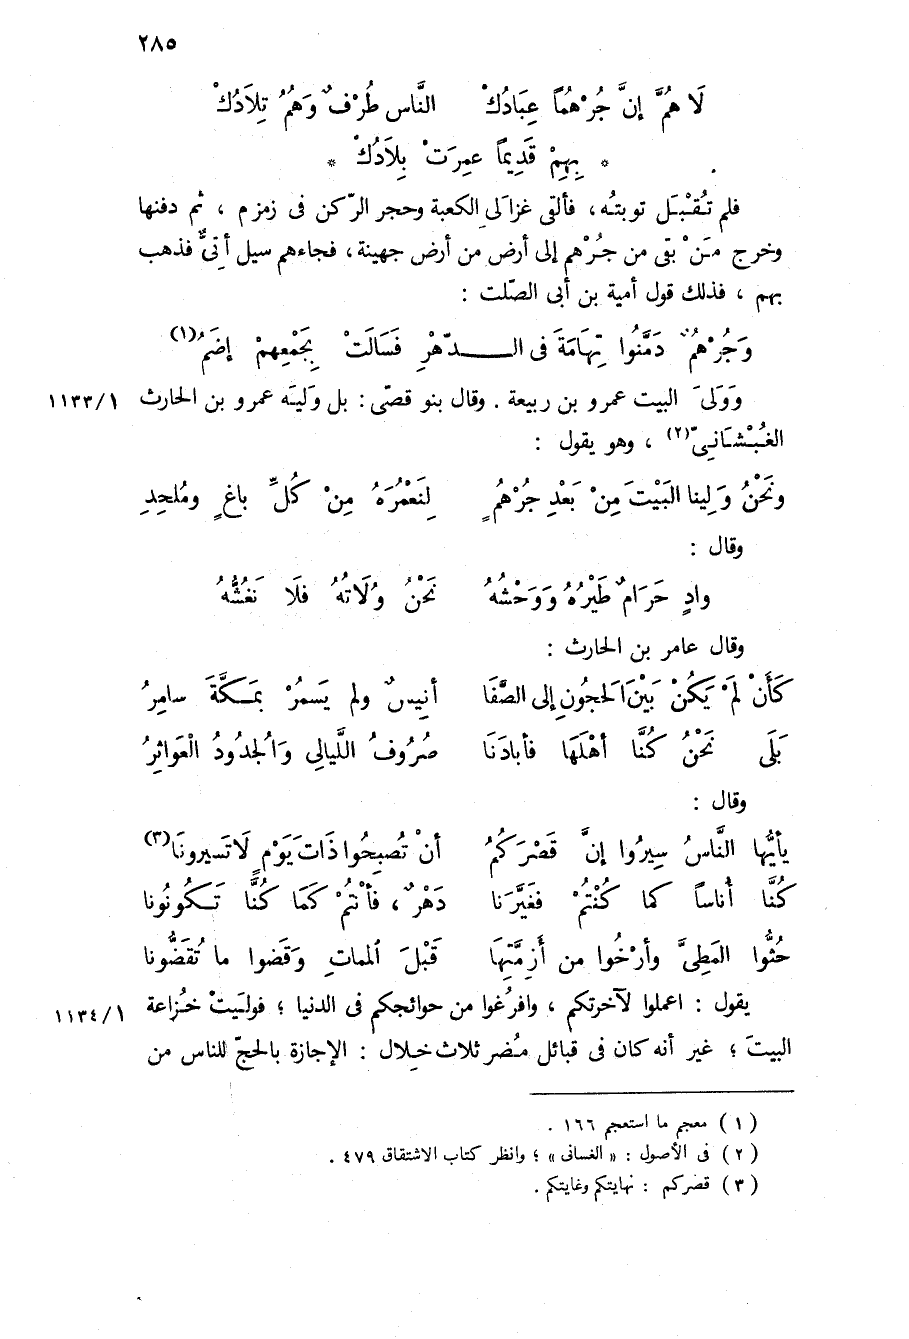 ٢٨٥
لَا هُمَّ إنَّ جُرْهُمًا عِبَادُكْ النَّاس طُرْفٌ وَهُمُ تِلَادُكْ
* بِهِمْ قَدِيمًا عمِرَتْ بِلَادُكْ *
فلم تُقْبَل توبتُه، فألقى غزالَى الكعبة وحجر الرّكن فى زمزم ، ثم دفنها
وخرج مَنْ بقى من جُرْهم إلى أرض من أرض جهينة، فجاءهم سيل أتىٌّ فذهب
بهم ، فذلك قول أمية بن أبى الصّلت :
وَجُرْهُمٌ دَمَّنُوا تِهَامَةَ فى الـدّهْرِ فَسَالَتْ بِجَمْعِهِمْ إضَمُ(١)
وَوَلىَ البيت عمرو بن ربيعة . وقال بنو قصىّ : بل وَليَه عمرو بن الحارث ١١٣٣/١
الغُبْشَانِىّ(٢) ، وهو يقول :
ونَحْنُ وَلِينا البَيْتَ مِنْ بَعْدِ جُرْهُمٍ لِنَعْمُرَهُ مِنْ كُلِّ باغٍ ومُلحِدِ
وقال :
وادٍ حَرَامٌ طَيْرُهُ وَوَحْشُهُ نَحْنُ وُلَاتُهُ فلَا نَغُشُّهُ
وقال عامر بن الحارث :
كَأَنْ لَمْ يَكُنْ بَيْنَ الحَجُونِ إلى الصَّفَا أنِيسٌ ولم يَسمُرْ بمَكَّةَ سامِرُ
بَلَى نَحْنُ كُنَّا أهْلَهَا فأبادَنَا صُرُوفُ اللَّيالِى وَالجدُودُ الْعَواثِرُ
وقال :
يأيُّها النَّاسُ سِيرُوا إنَّ قَصْرَكُمُ أنْ تُصبِحُوا ذَاتَ يَوْمٍ لَا تَسيرونَا(٣)
كُنَّا أُناسًا كما كُنْتُمْ فغَيَّرَنا دَهْرٌ ، فأنْتُمْ كَمَا كُنَّا تَكُونُونا
حُثُّوا المَطِىَّ وأرْخُوا من أَزِمَّتِهَا قَبْلَ الْمماتِ وَقَضوا ما تُقَضُّونا
يقول : اعملوا لآخرتكم ، وافرُغوا من حوائجكم فى الدنيا ؛ فوليَتْ خُزاعة ١١٣٤/١
البيتَ ؛ غير أنه كان فى قبائل مُضر ثلاث خلال : الإجازة بالحجّ للناس من
( ١ ) معجم ما استعجم ١٦٦ .
( ٢ ) فى الأصول : « الغسانى » ؛ وانظر كتاب الاشتقاق ٤٧٩ .
( ٣ ) قصركم : نهايتكم وغايتكم .